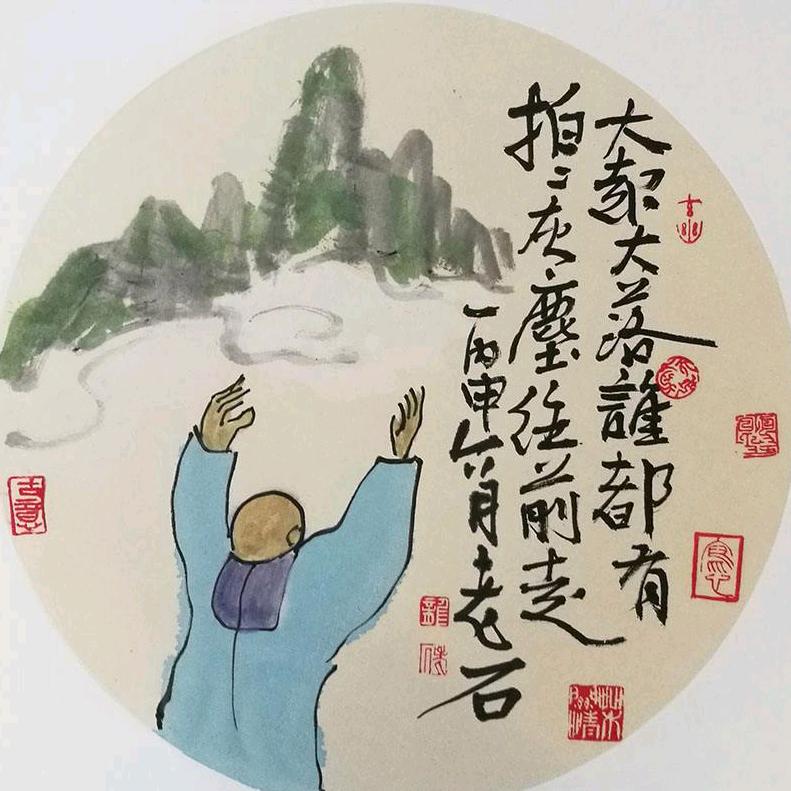 大起大落誰都有
拍〻灰塵往前走
丙申六月老石